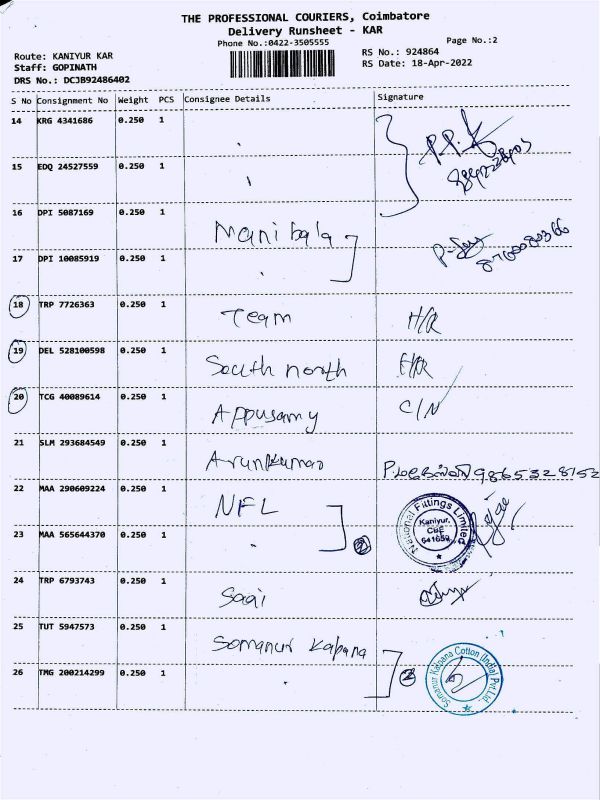 THE PROFESSIONAL COURIERS, Coimbatore
Delivery Runsheet - KAR
Phone No.:0422-3505555
Page No.:2
Route: KANIYUR KAR
RS No.: 924864
Staff: GOPINATH
RS Date: 18-Apr-2022
DRS No.: DCJB92486402
S No Consignment No Weight PCS Consignee Details Signature
14 KRG 4341686 0.250 1
P.P.
15 EDQ 24527559 0.250 1
16 DPI 5087169 0.250 1
Manibala
17 DPI 10085919 0.250 1
18 TRP 7726363 0.250 1
Team H/R
19 DEL 528100598 0.250 1
South north
20 TCG 40089614 0.250 1
Appusamy C/N
21 SLM 293684549 0.250 1
Arunkumar 9865328152
22 MAA 290609224 0.250 1
NFL
National Fittings Limited
Kaniyur,
CBE
641659
23 MAA 565644370 0.250 1
2
24 TRP 6793743 0.250 1
Saai
25 TUT 5947573 0.250 1
Somanur Kalpana
26 TMG 200214299 0.250 1
2
Somanur Kalpana Cotton (India) Pvt.Ltd.